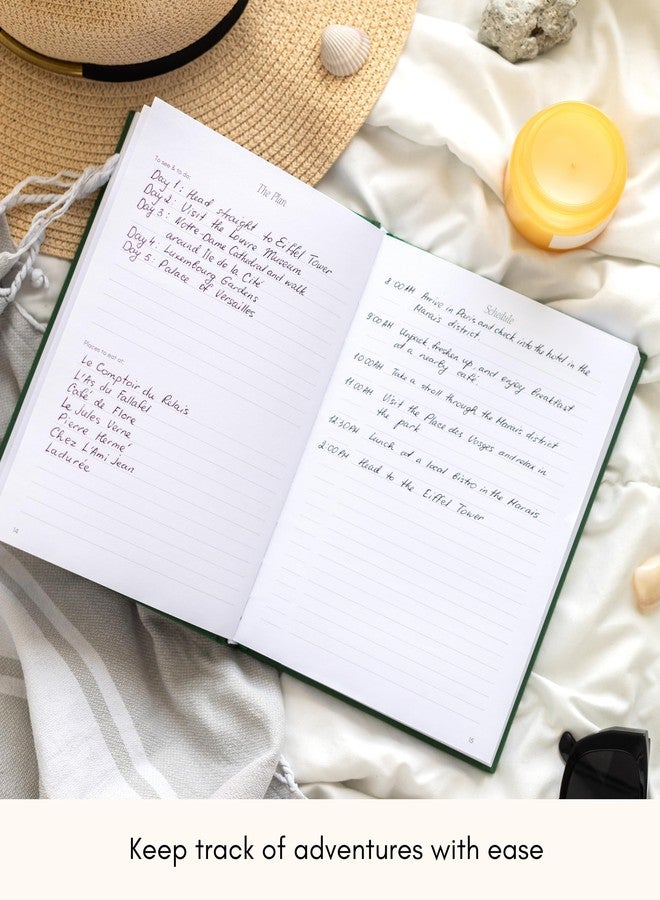 To see & to do:
The Plan
Day 1: Head straight to Eiffel Tower
Day 2: Visit the Louvre Museum
Day 3: Notre-Dame Cathedral and walk
around Île de la Cité
Day 4: Luxembourg Gardens
Day 5: Palace of Versailles
Places to eat at:
Le Comptoir du Relais
L'As du Fallafel
Café de Flore
Le Jules Verne
Pierre Hermé
Chez L'Ami Jean
Ladurée
14
Schedule
8:00 AM Arrive in Paris and check into the hotel in the
Marais district
9:00 AM Unpack, freshen up, and enjoy breakfast
at a nearby café.
10:00 AM Take a stroll through the Marais district
11:00 AM Visit the Place des Vosges and relax in
the park
12:30 PM Lunch at a local bistro in the Marais
2:00 PM Head to the Eiffel Tower
15
Keep track of adventures with ease